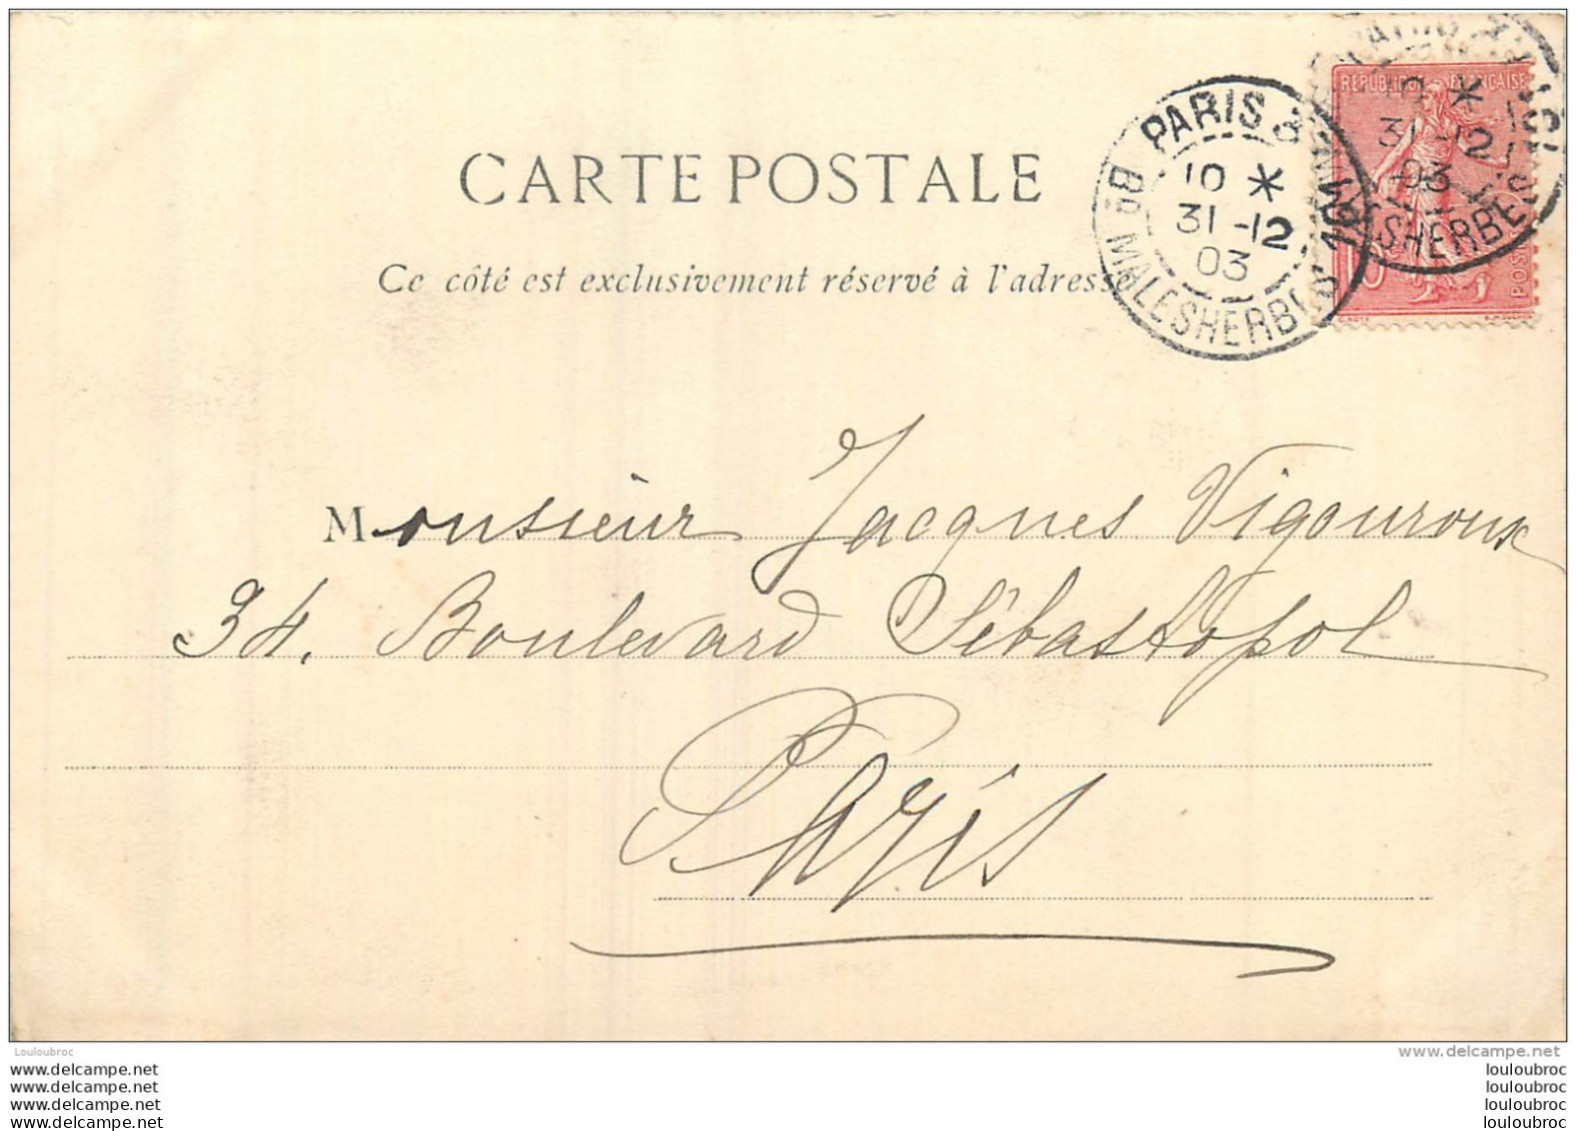 CARTE POSTALE
Ce côté est exclusivement réservé à l'adresse
PARIS
10 *
31 -12
03
Bd MALESHERBES
REPUBLIQUE FRANÇAISE
10 *
31 -12
03
SHERBES
10
POSTES
Monsieur Jacques Vigouroux
34. Boulevard Sébastopol
Paris
Louloubroc
www.delcampe.net
www.delcampe.net
www.delcampe.net
www.delcampe.net
www.delcampe.net
louloubroc
louloubroc
louloubroc
louloubroc